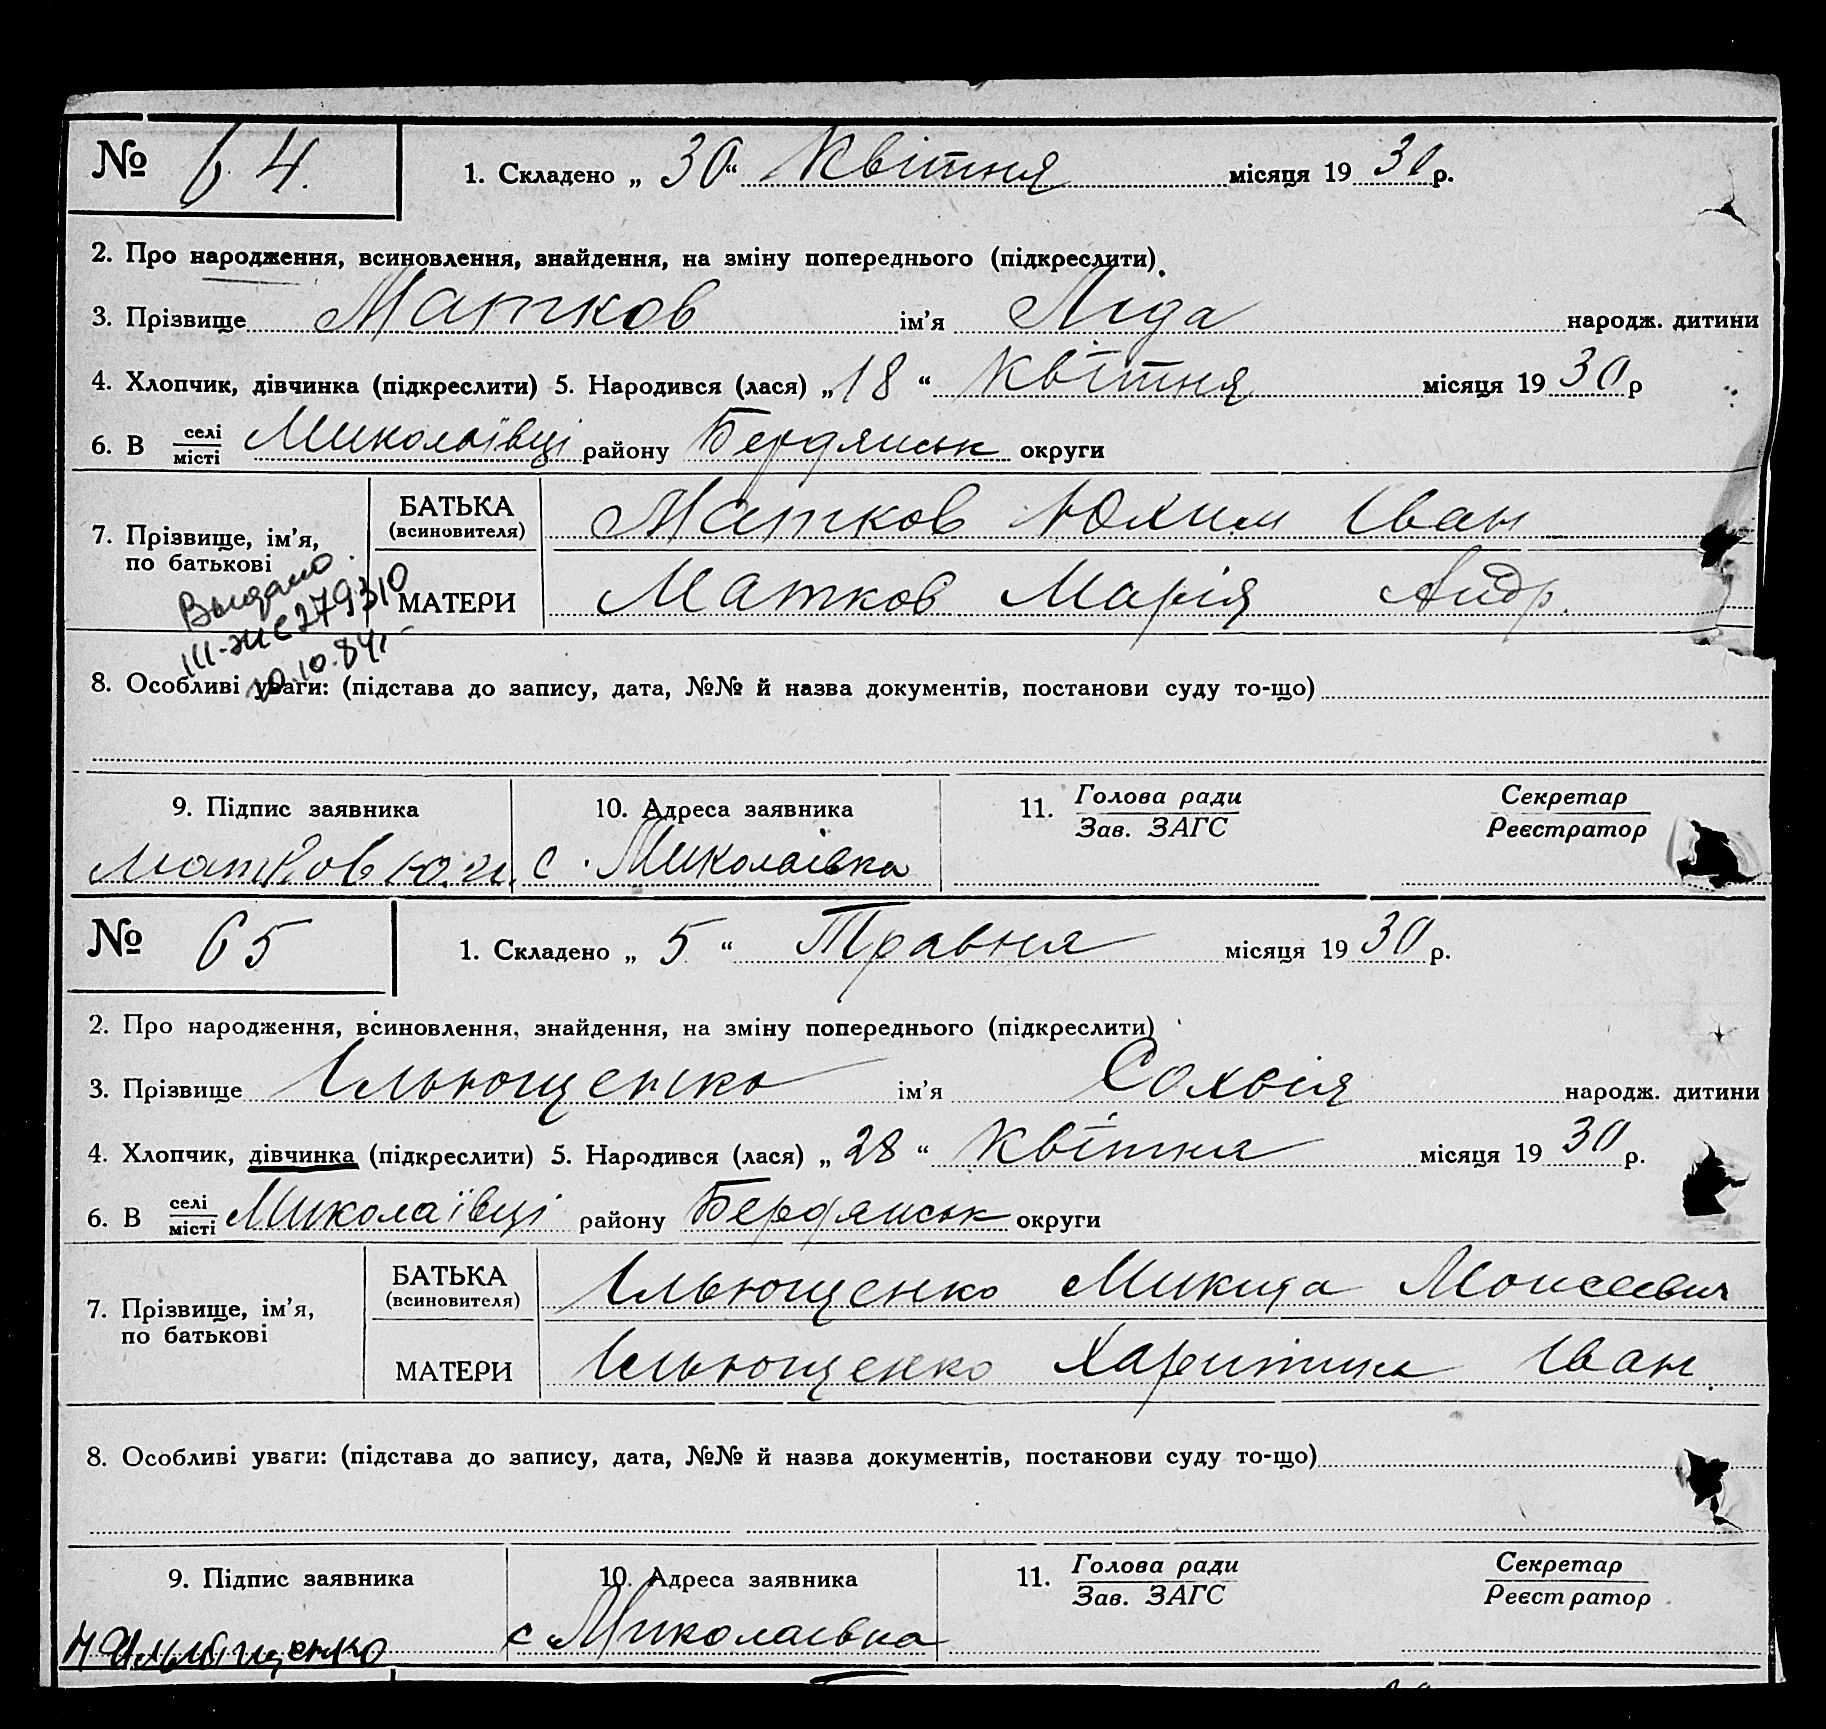 № 64. 1. Складено „ 30 “ Квітня місяця 19 30 р.
2. Про народження, всиновлення, знайдення, на зміну попереднього (підкреслити)
3. Прізвище Матков ім’я Ліда народж. дитини
4. Хлопчик, дівчинка (підкреслити) 5. Народився (лася) „ 18 “ Квітня місяця 19 30 р
6. В селі місті Миколаївці району Бердянськ округи
7. Прізвище, ім’я, по батькові
БАТЬКА (всиновителя) Матков Юхим Іван
МАТЕРИ Матков Марія Андр.
Выдано
III-ЖС 279310
10.10.84г
8. Особливі уваги: (підстава до запису, дата, №№ й назва документів, постанови суду то-що)
9. Підпис заявника 10. Адреса заявника 11. Голова ради Зав. ЗАГС Секретар Реєстратор
Матков Ю.И. с. Миколаівка
№ 65 1. Складено „ 5 “ Травня місяця 19 30 р.
2. Про народження, всиновлення, знайдення, на зміну попереднього (підкреслити)
3. Прізвище Ільющенко ім’я Сохвія народж. дитини
4. Хлопчик, дівчинка (підкреслити) 5. Народився (лася) „ 28 “ Квітня місяця 19 30 р.
6. В селі місті Миколаївці району Бердянськ округи
7. Прізвище, ім’я, по батькові
БАТЬКА (всиновителя) Ільющенко Микита Моисеевич
МАТЕРИ Ільющенко Харитина Іван.
8. Особливі уваги: (підстава до запису, дата, №№ й назва документів, постанови суду то-що)
9. Підпис заявника 10. Адреса заявника 11. Голова ради Зав. ЗАГС Секретар Реєстратор
с Миколаівка